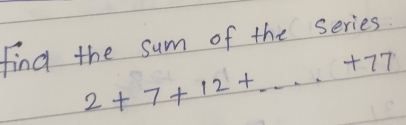 find the sum of the series.
2 + 7 + 12 + .... +77